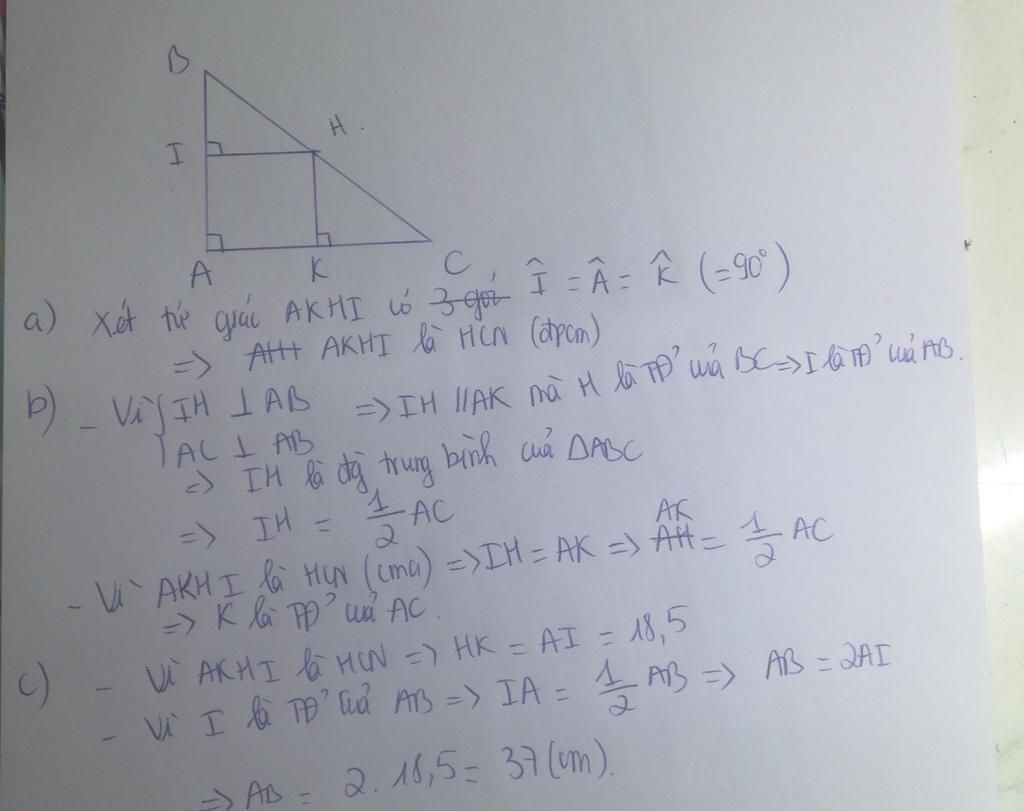 B
H.
I
A K C
a) Xét tứ giác AKHI có 3 góc Î = Â = K̂ (=90°)
=> AHH AKHI là HCN (đpcm)
b) - Vì { IH ⊥ AB => IH // AK mà H là TĐ' của BC => I là TĐ' của AB.
AC ⊥ AB
=> IH là đg trung bình của ΔABC
=> IH = 1/2 AC
- Vì AKHI là HCN (cma) => IH = AK => AH AK = 1/2 AC
=> K là TĐ' của AC.
c) - Vì AKHI là HCN => HK = AI = 18,5
- Vì I là TĐ' của AB => IA = 1/2 AB => AB = 2AI
=> AB = 2. 18,5 = 37 (cm).